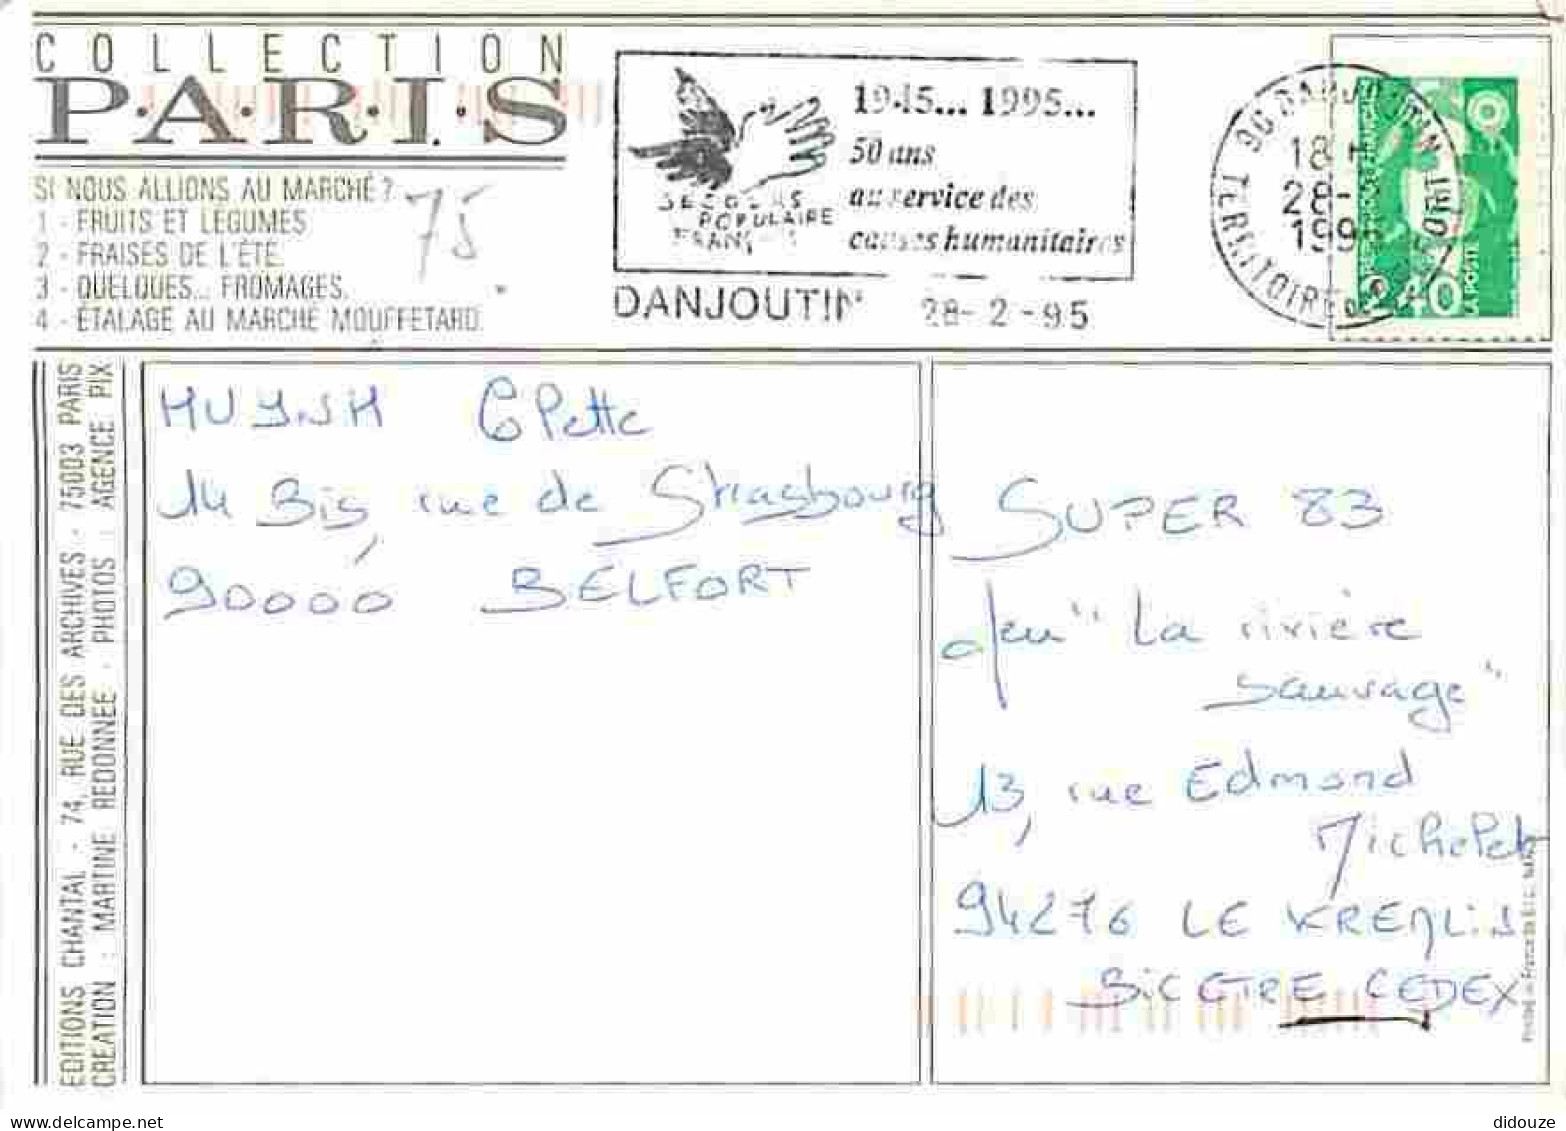 COLLECTION
P·A·R·I·S
SI NOUS ALLIONS AU MARCHÉ ?
1 - FRUITS ET LÉGUMES
2 - FRAISES DE L'ÉTÉ.
3 - QUELQUES... FROMAGES.
4 - ÉTALAGE AU MARCHÉ MOUFFETARD.
75
SECOURS
POPULAIRE
FRANÇAIS
1945... 1995...
50 ans
au service des
causes humanitaires
DANJOUTIN 28-2-95
90 DANJOUTIN
18 H
28-2
1995
TERRITOIRE DE BELFORT
REPUBLIQUE FRANÇAISE
2,40
LA POSTE
EDITIONS CHANTAL - 74, RUE DES ARCHIVES - 75003 PARIS
CREATION : MARTINE REDONNEE - PHOTOS : AGENCE PIX
HUYNH
14 Bis, rue de Strasbourg
90000 BELFORT
SUPER 83
Jeu "La rivière
sauvage"
13, rue Edmond
Michelet
94276 LE KREMLIN
BICETRE CEDEX
didouze